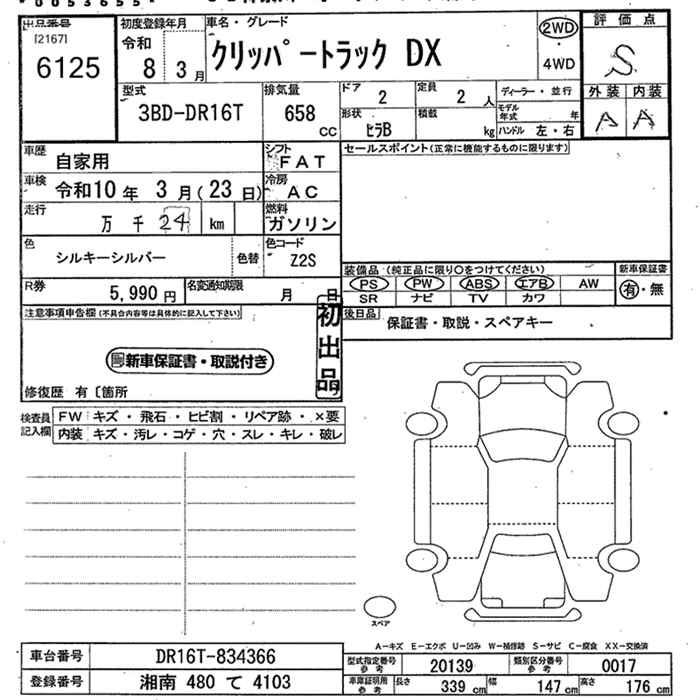 *0053655*
出品番号
[2167]
6125
初度登録年月
令和
8 3月
車名・グレード
クリッパートラック DX
2WD
4WD
評価点
S
外装 内装
A A
型式
3BD-DR16T
排気量
658
cc
ドア
2
定員
2 人
ディーラー・並行
モデル年式 年
形状
ヒラB
積載
kg
ハンドル 左・右
車歴
自家用
シフト
FAT
セールスポイント(正常に機能するものに限ります)
車検
令和10年 3月(23日)
冷房
AC
走行
万 千 24 km
燃料
ガソリン
色
シルキーシルバー
色替
色コード
Z2S
装備品 (純正品に限り○をつけてください)
新車保証書
PS PW ABS エアB AW
有・無
SR ナビ TV カワ
R券
5,990 円
名変通知期限
月 日
初出品
後日品
保証書・取説・スペアキー
注意事項申告欄(不具合内容等は具体的に記入して下さい)
新車保証書・取説付き
修復歴 有〔箇所
検査員記入欄
FW キズ・飛石・ヒビ割・リペア跡・×要
内装 キズ・汚レ・コゲ・穴・スレ・キレ・破レ
スペア
A-キズ E-エクボ U-凹み W-補修跡 S-サビ C-腐食 XX-交換済
車台番号
DR16T-834366
型式指定番号 参考
20139
類別区分番号 参考
0017
登録番号
湘南 480 て 4103
車庫証明用 参考
長さ 339 cm
幅 147 cm
高さ 176 cm